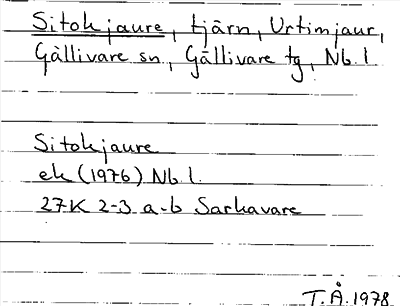 Sitokjaure, tjärn, Urtimjaur,
Gällivare sn, Gällivare tg, Nb. l.
Sitokjaure
ek (1976) Nb l.
27K 2-3 a-b Sarkavare
T.Å. 1978